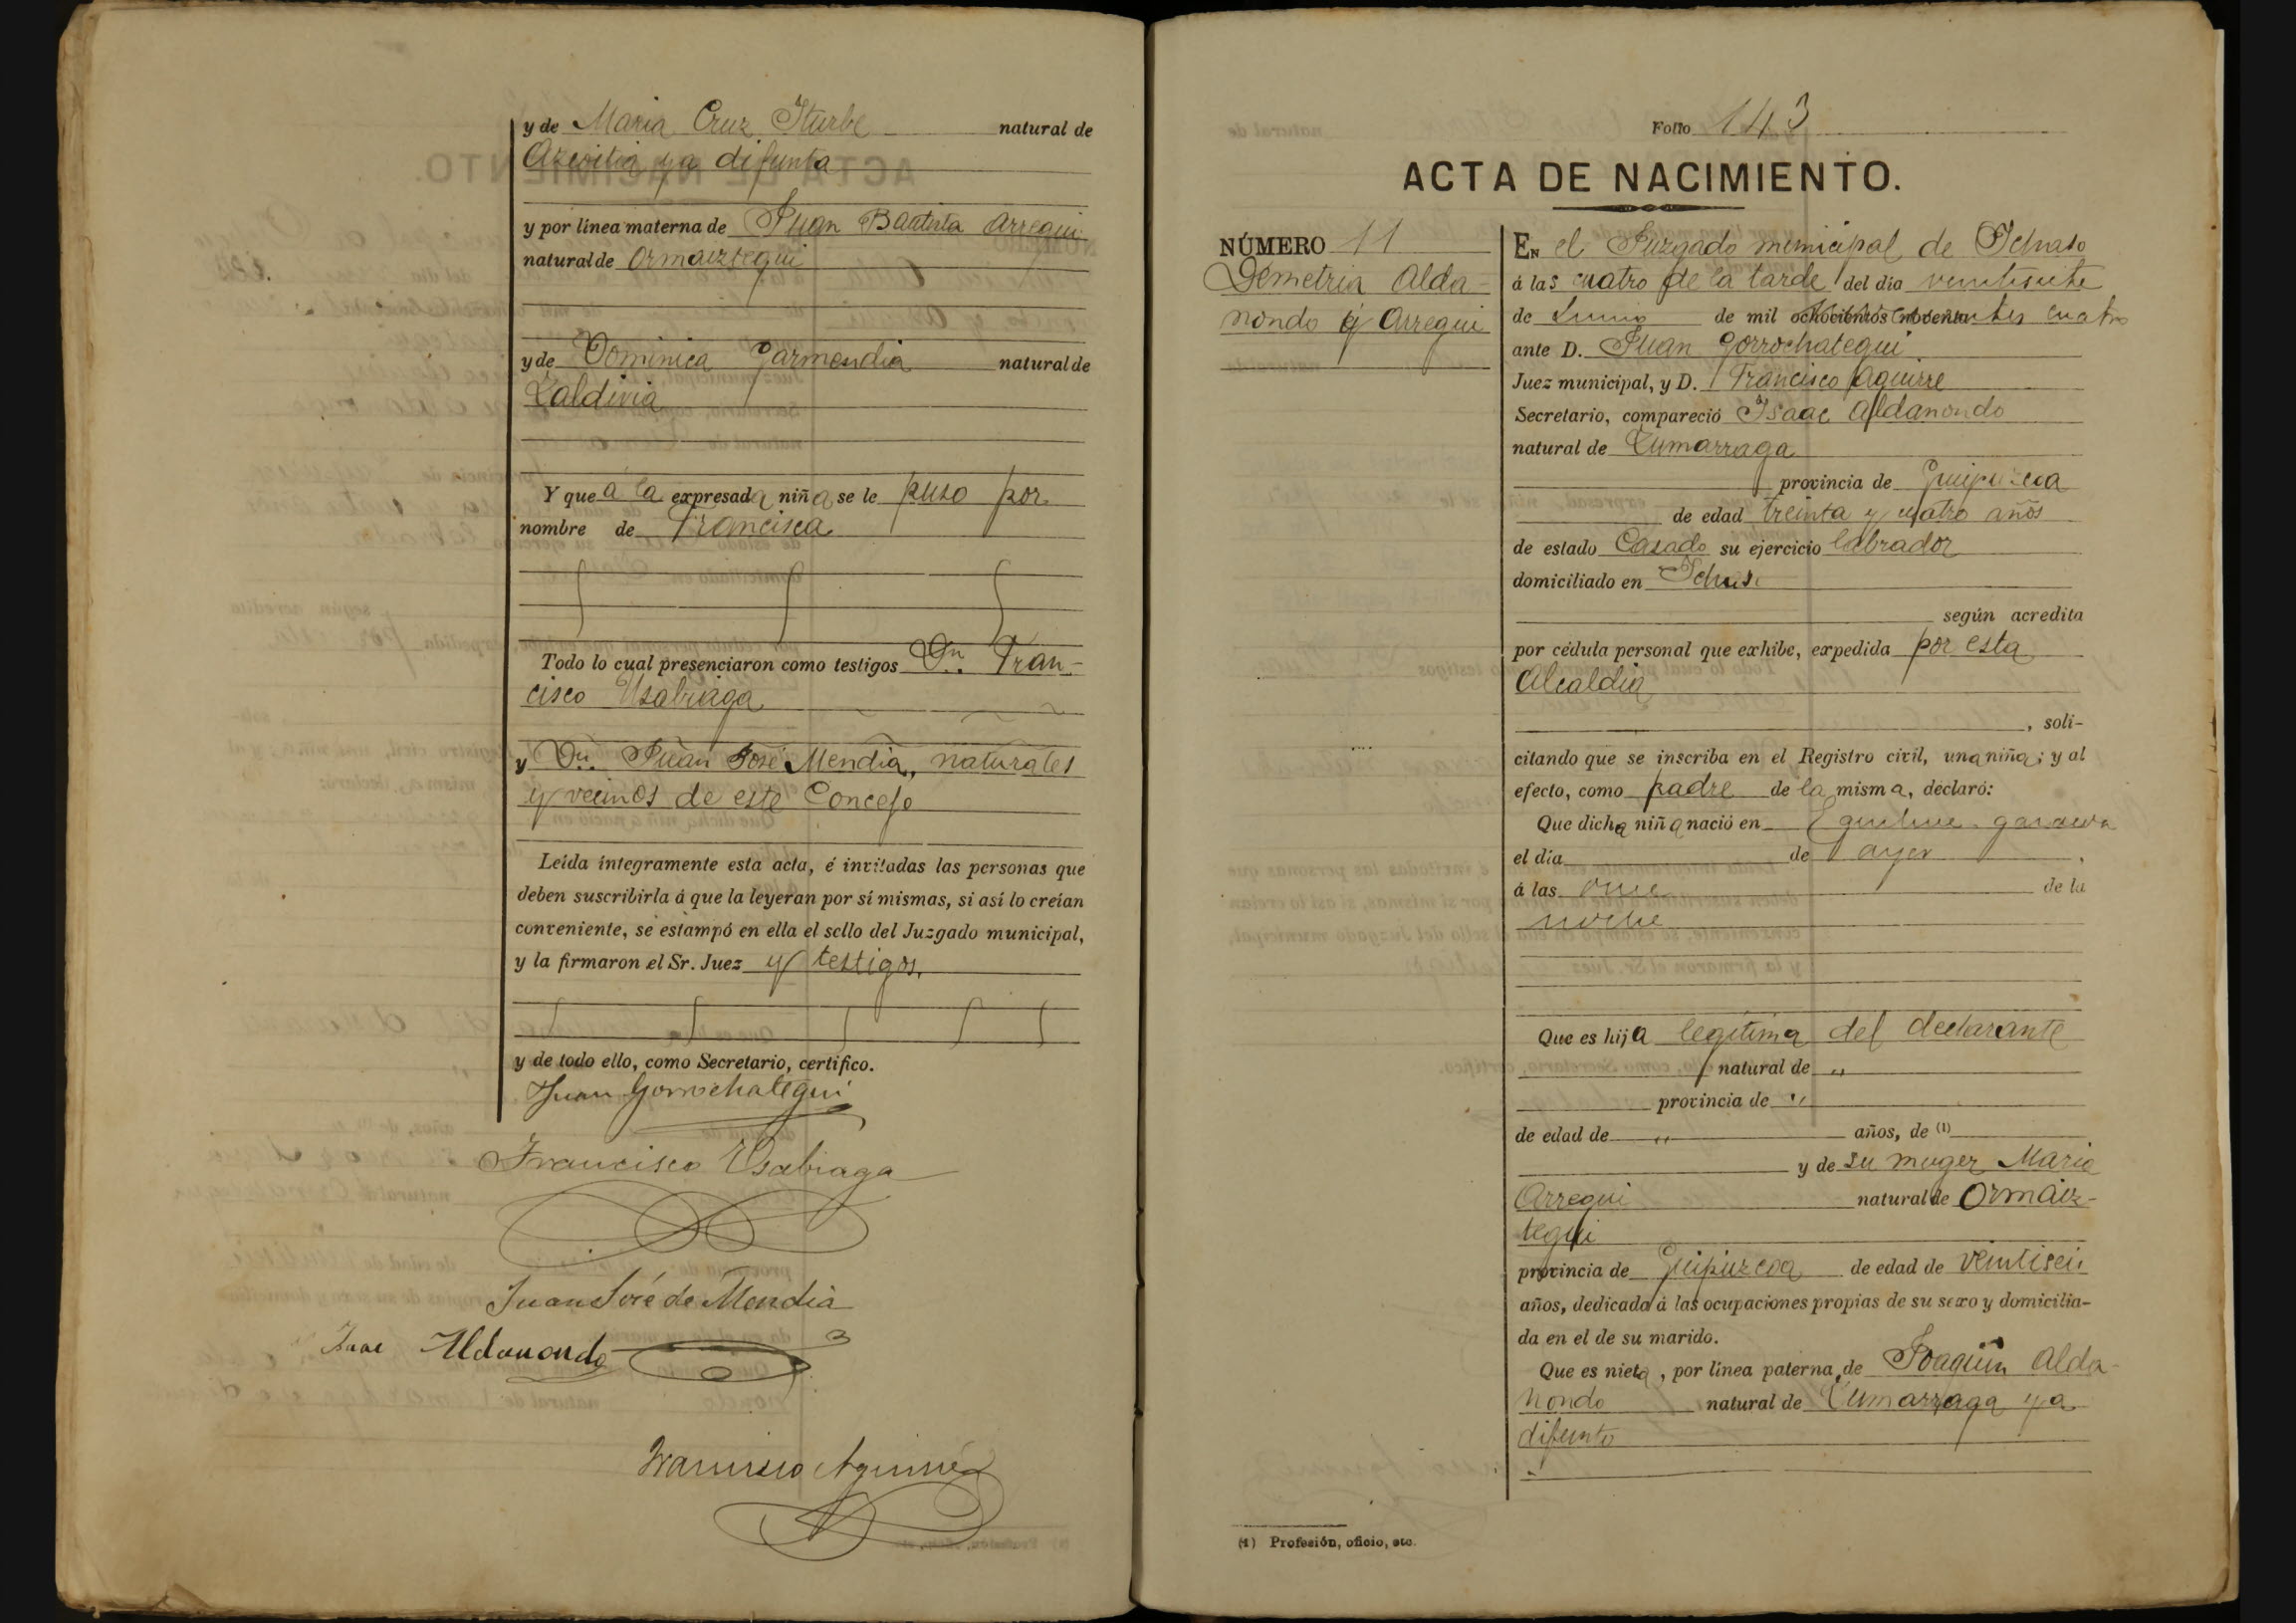 y de Maria Cruz Iturbe natural de
Azcoitia ya difunta
y por línea materna de Juan Bautista Arregui
natural de Ormaiztegui
y de Dominica Garmendia natural de
Zaldivia
Y que á la expresada niña se le puso por
nombre de Francisca
Todo lo cual presenciaron como testigos Dn. Fran-
cisco Usabiaga
y Dn. Juan José Mendia, naturales
y vecinos de este Concejo
Leída íntegramente esta acta, é invitadas las personas que
deben suscribirla á que la leyeran por sí mismas, si así lo creían
conveniente, se estampó en ella el sello del Juzgado municipal,
y la firmaron el Sr. Juez y testigos.
y de todo ello, como Secretario, certifico.
Juan Gorrochategui
Francisco Usabiaga
Juan José de Mendia
Isaac Aldanondo
Francisco Aguirre
Folio 143
ACTA DE NACIMIENTO.
NÚMERO 11
Demetria Alda-
nondo y Arregui
EN el Juzgado municipal de Ichaso
á las cuatro de la tarde del dia veintisiete
de Junio de mil ochocientos noventa cuatro
ante D. Juan Gorrochategui
Juez municipal, y D. Francisco Aguirre
Secretario, compareció Isaac Aldanondo
natural de Zumarraga
provincia de Guipuzcoa
de edad treinta y cuatro años
de estado Casado su ejercicio labrador
domiciliado en Ichaso
según acredita
por cédula personal que exhibe, expedida por esta
Alcaldia
, soli-
citando que se inscriba en el Registro civil, una niña; y al
efecto, como padre de la misma, declaró:
Que dicha niña nació en
el día de ayer ,
á las once de la
noche
Que es hija legitima del declarante
natural de "
provincia de "
de edad de " años, de (1)
y de su muger Maria
Arregui natural de Ormaiz-
tegui
provincia de Guipuzcoa de edad de veintiseis
años, dedicada á las ocupaciones propias de su sexo y domicilia-
da en el de su marido.
Que es nieta, por línea paterna, de Joaquin Alda-
nondo natural de Zumarraga ya
difunto
(1) Profesión, oficio, etc.